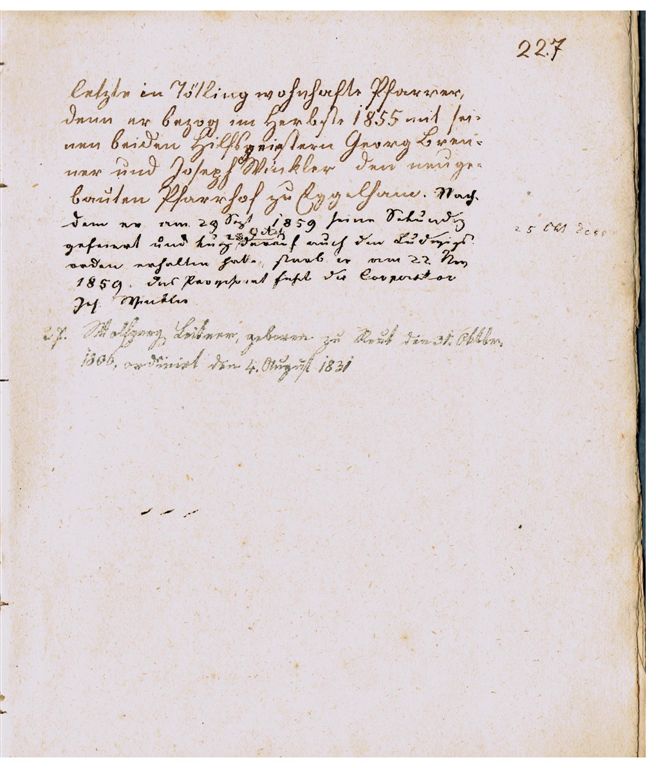 227
letzte in Tötling wohnhafte Pfarrer,
denn er bezog im Herbste 1855 mit sei-
nen beiden Hilfspriestern Georg Bren-
ner und Joseph Winkler den neuge-
bauten Pfarrhof zu Eggelham. Nach-
dem er am 29 Sept 1859 seine Sekundiz
gefeiert und kurz darauf auch den Ludwigs-
orden erhalten hatte, starb er am 22 Nov
1859. Das Provisorat hatte der Cooperator
Jos. Winkler
Wolfgang Leitner, geboren zu Reut den 31. Oktbr.
1806, ordinirt den 4. August 1831
25 Okt